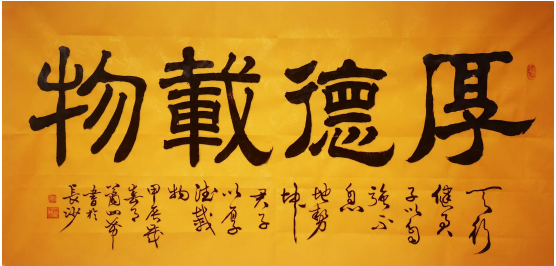 厚德載物
天行
健君
子以自
強不
息
地勢
坤
君子
以厚
德載
物
甲辰歲
春月
書於
長沙